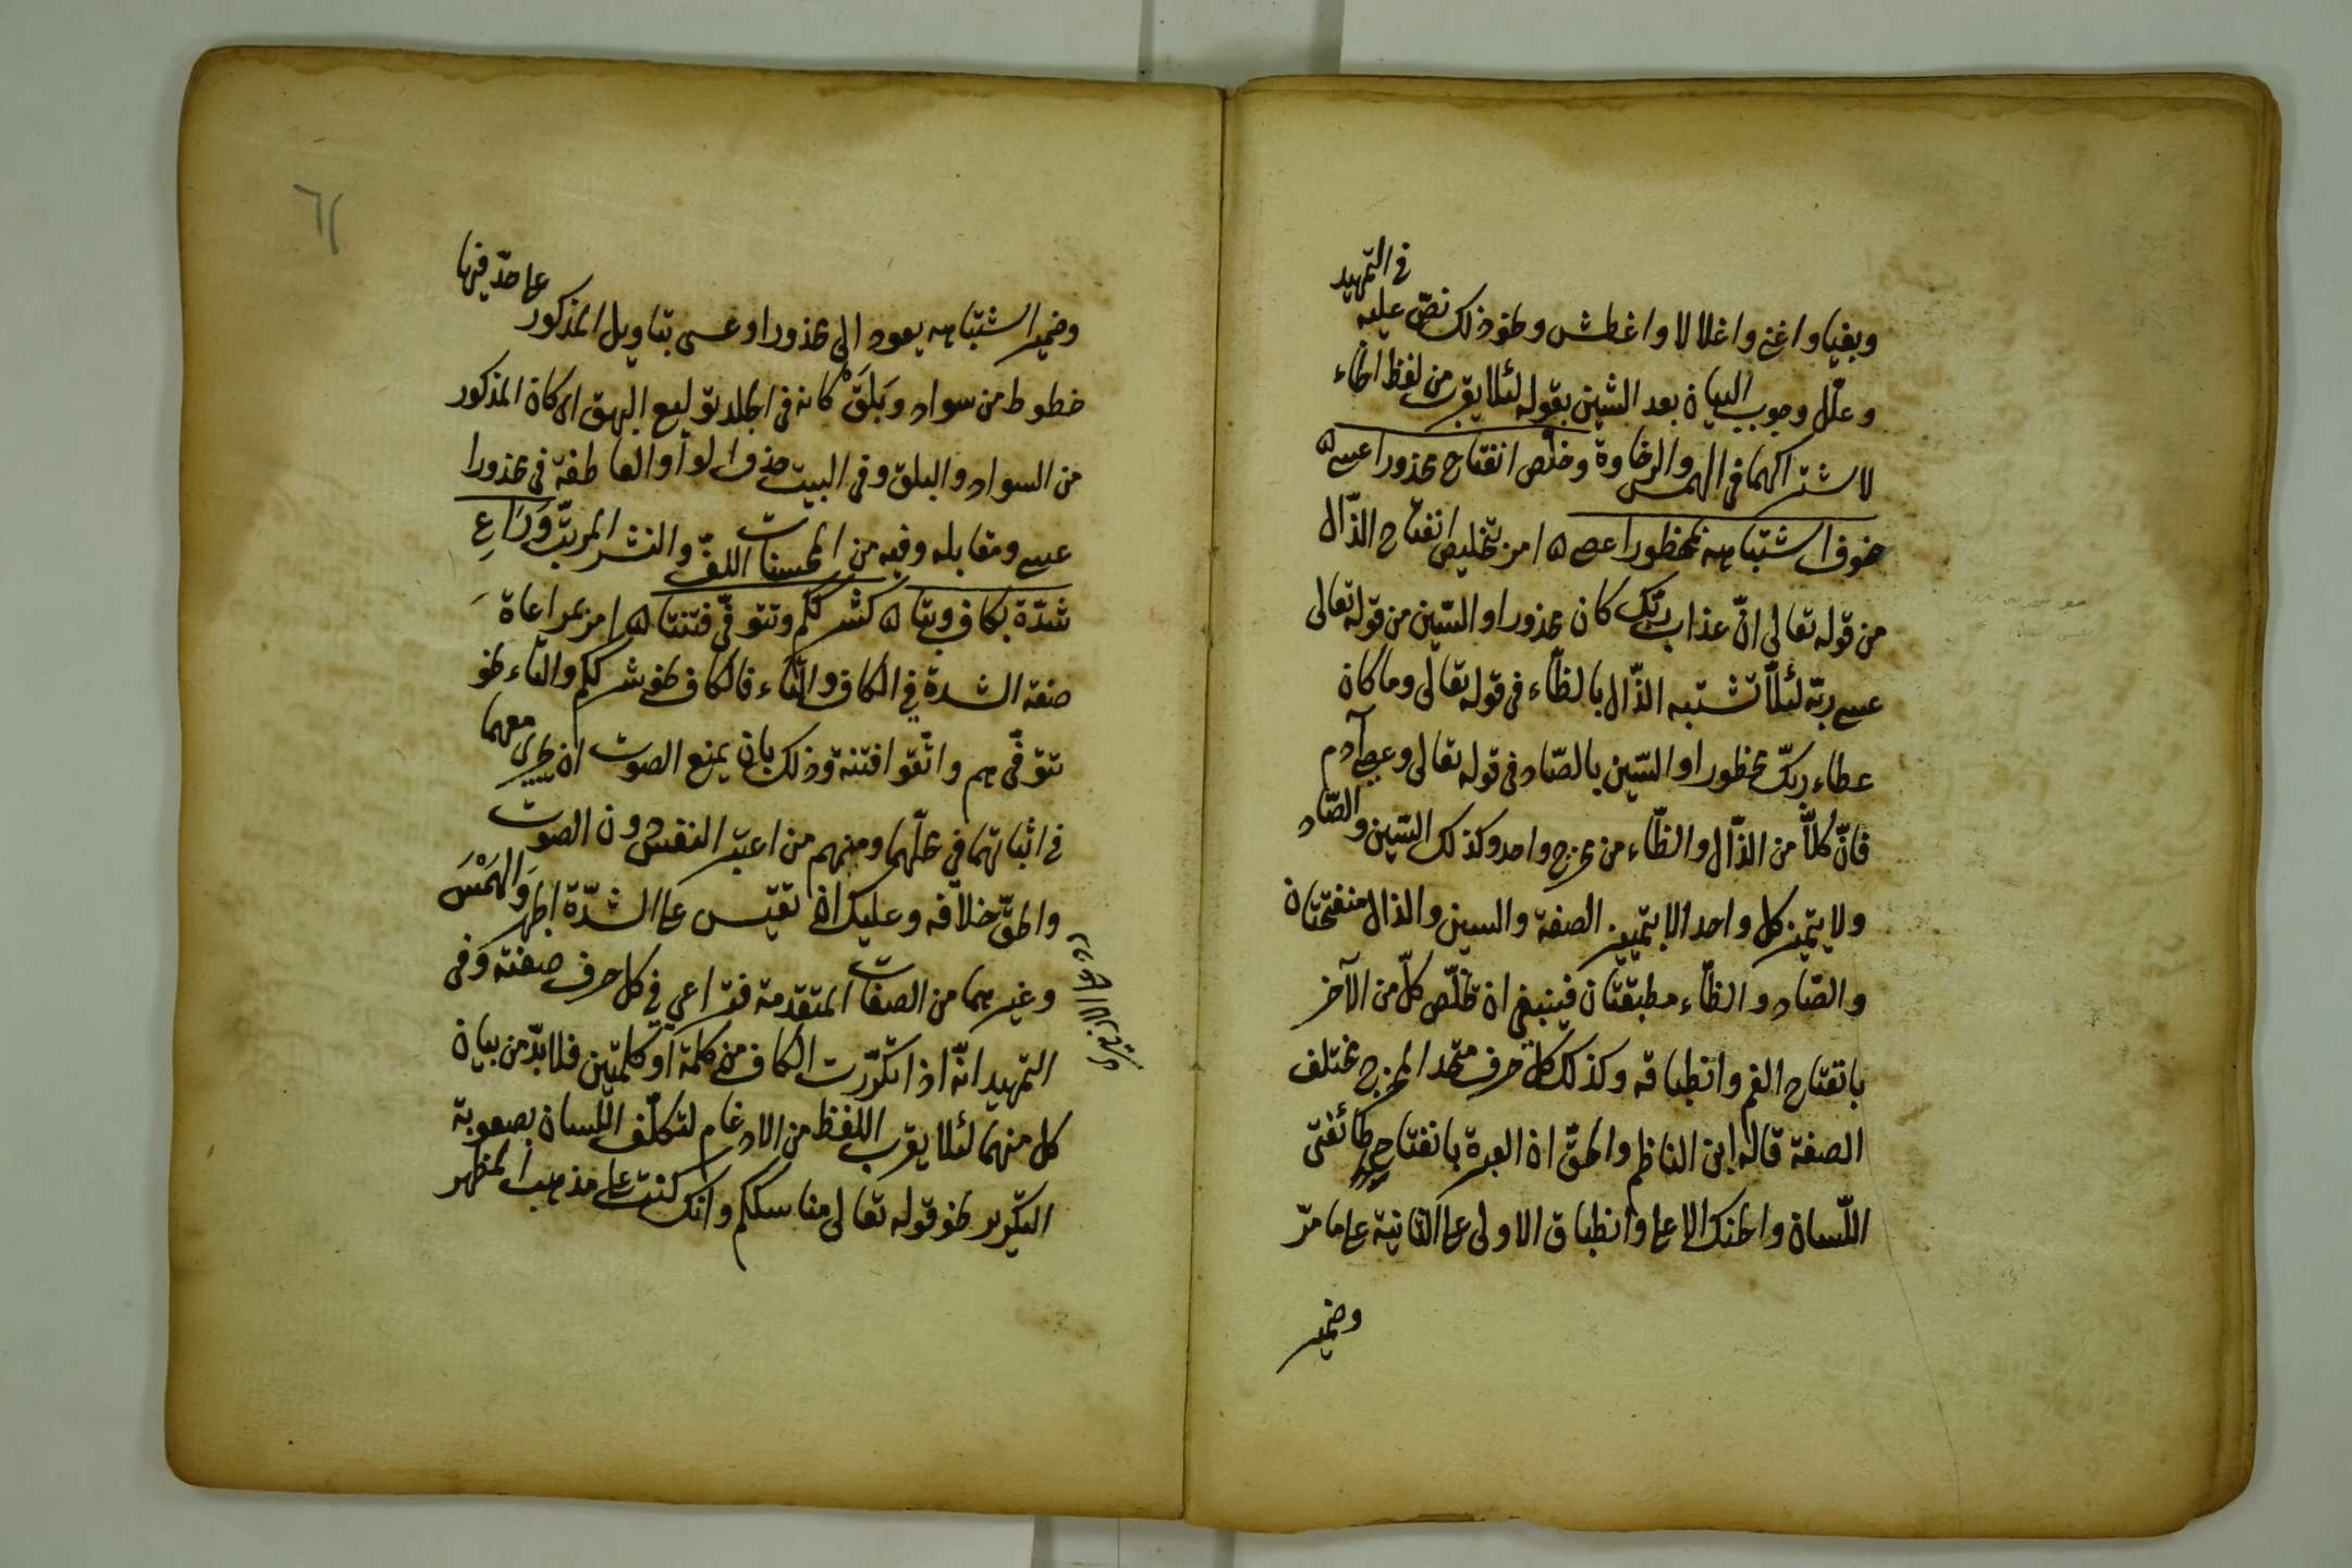 وبغيا واغنى واغلالا واغطش ونحو ذلك نصّ عليه في التمهيد
وعلّل وجوب البيان بعد الشين بقوله لئلا يقرب من لفظ الخاء
لاشتراكهما في الهمس والرخاوة وخلّص انفتاح محذورا عسى
خوف اشتباهه بمحظورا عصى امر بتخليص انفتاح الذّال
من قوله تعالى انّ عذاب ربّك كان محذورا والسّين من قوله تعالى
عسى ربّه لئلّا تشتبه الذّال بالظّاء في قوله تعالى وما كان
عطاء ربّك محظورا والسّين بالصّاد في قوله تعالى وعصى آدم
فانّ كلّا من الذّال والظّاء من مخرج واحد وكذلك السّين والصّاد
ولا يتميز كل واحد الا بتمييز الصفة والسين والذال منفتحتان
والصّاد والظّاء مطبقتان فينبغي ان تخلّص كلّ من الآخر
بانفتاح الفم وانطباقه وكذلك كل حرف متحد المخرج مختلف
الصفة قاله ابن الناظم والحقّ ان العبرة بانفتاح طائفتى
اللّسان والحنك الاعلى وانطباق الاولى على الثانية على ما مرّ
وضمير
٦١
وضمير اشتباهه يعود الى محذورا وعسى بتاويل المذكور على حدّ فيها
خطوط من سواد وبَلَقْ كانه في الجلد توليع البهق اى كان المذكور
من السواد والبلق وفى البيت حذف الواو العاطفة في محذورا
عسى ومقابله وفيه من المحسنات اللفّ والنشر المرتّب وَرَاعِ
شدّة بكاف وبتا كشرككم وتتوفّى فتنتا امر بمراعاة
صفة الشدة في الكاف والتّاء فالكاف نحو بشرككم والتاء نحو
تتوفّى هم واتّقوا فتنة وذلك بان يمنع الصوت ان يجرى معهما
في اثباتهما في محلّهما ومنهم من اعتبر النفس دون الصوت
والحقّ خلافه وعليك ان تقيس على الشدّة الجهر وَالهَمْسَ
وغيرهما من الصفات المتقدمة فتراعى في كل حرف صفته وفى
التمهيد انّه اذا تكرّرت الكاف من كلمة او كلمتين فلا بدّ من بيان
كل منهما لئلا يقرب اللفظ من الادغام لتكلّف اللّسان بصعوبة
التكرير نحو قوله تعالى مناسككم وانك كنت على مذهب المظهر